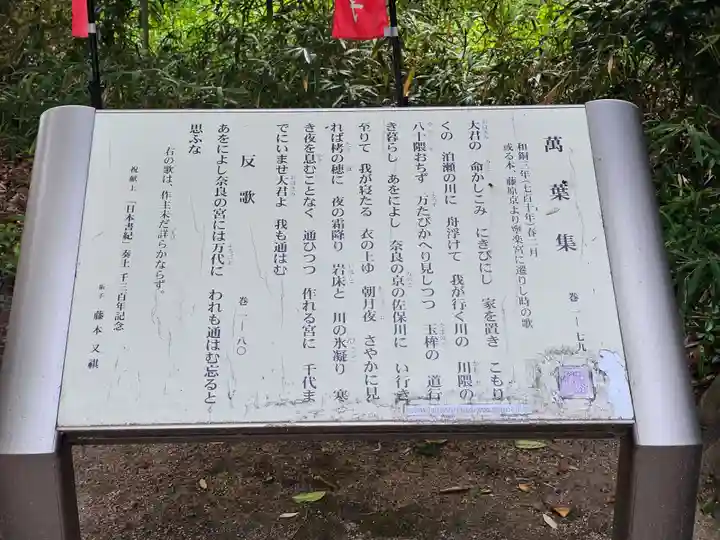 萬葉集
巻一―七九
和銅三年(七百十年)春二月
或る本、藤原京より寧楽宮に遷りし時の歌
大君の 命かしこみ にきびにし 家を置き こもり
くの 泊瀬の川に 舟浮けて 我が行く川の 川隈の
八十隈おちず 万たびかへり見しつつ 玉桙の 道行
き暮らし あをによし 奈良の京の佐保川に い行き
至りて 我が寝たる 衣の上ゆ 朝月夜 さやかに見
れば 栲の穂に 夜の霜降り 岩床と 川の氷凝り 寒
き夜を息むことなく 通ひつつ 作れる宮に 千代ま
でにいませ大君よ 我も通はむ
反歌
巻一―八〇
あをによし奈良の宮には万代に われも通はむ忘ると
思ふな
右の歌は、作主未だ詳らかならず。
祝献上 「日本書紀」奏上 千三百年記念
藤本又祺